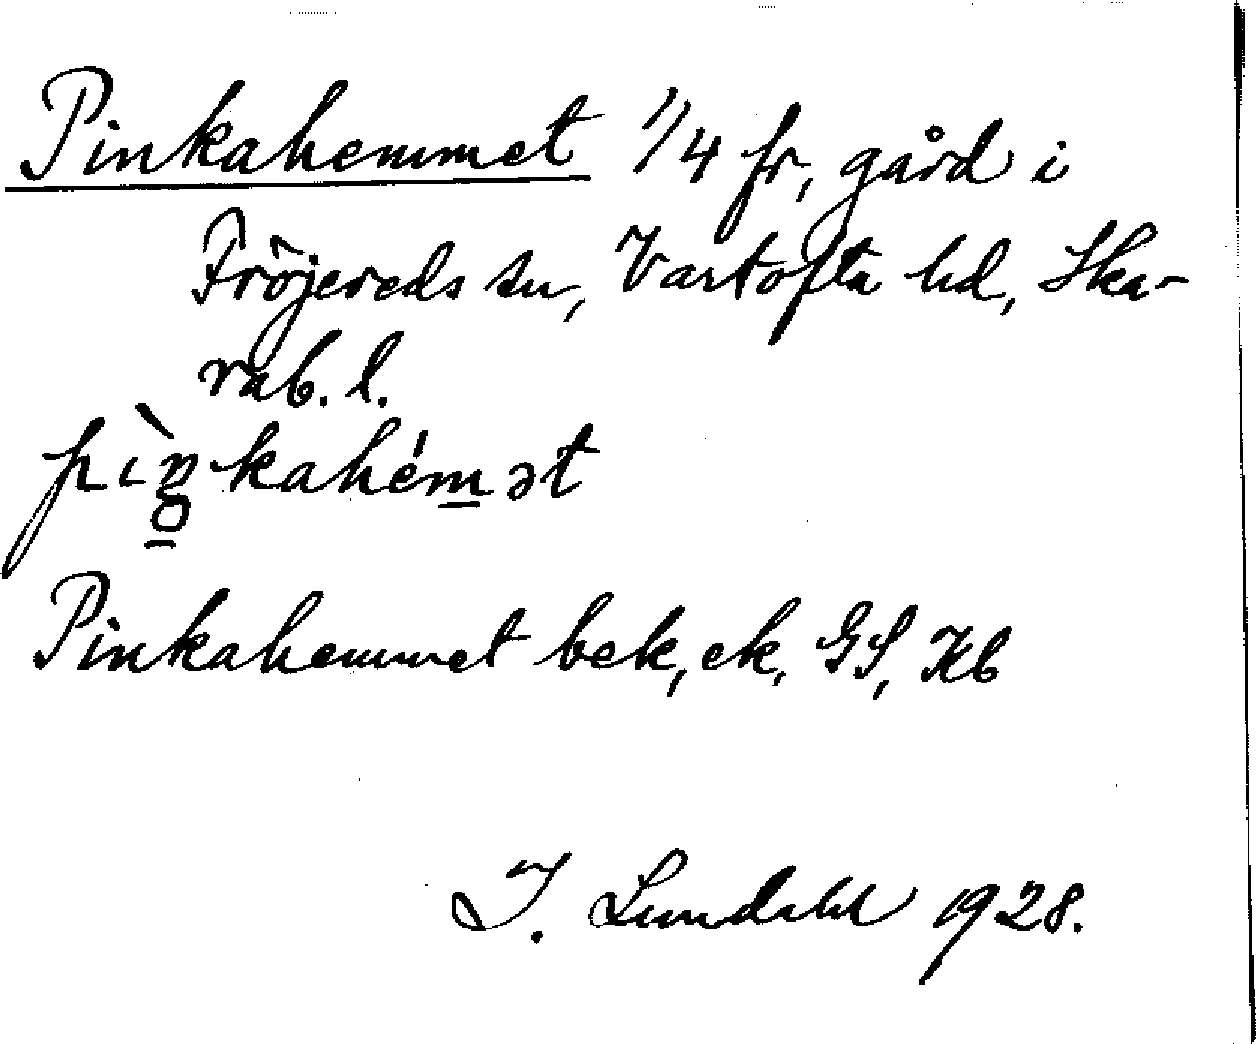 Pinkahemmet 1/4 fr, gård i
Fröjereds sn, Vartofta hd, Ska-
rab. l.
pìn̥̱kahém̱ət
Pinkahemmet bek, ek, GS, Kb
I. Lundahl 1928.